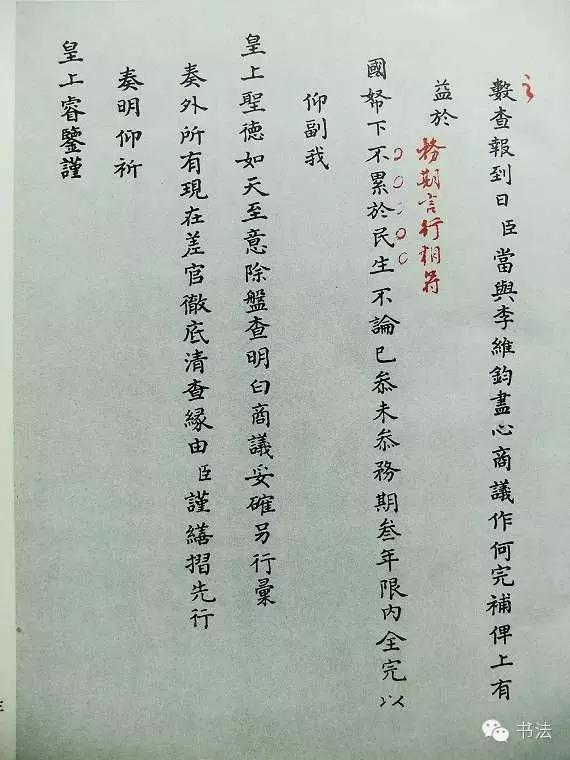 數查報到日臣當與李維鈞盡心商議作何完補俾上有
益於
務期言行相符
國帑下不累於民生不論已叅未叅務期叁年限內全完以
仰副我
皇上聖德如天至意除盤查明白商議妥確另行彙
奏外所有現在差官徹底清查緣由臣謹繕摺先行
奏明仰祈
皇上睿鑒謹
书法